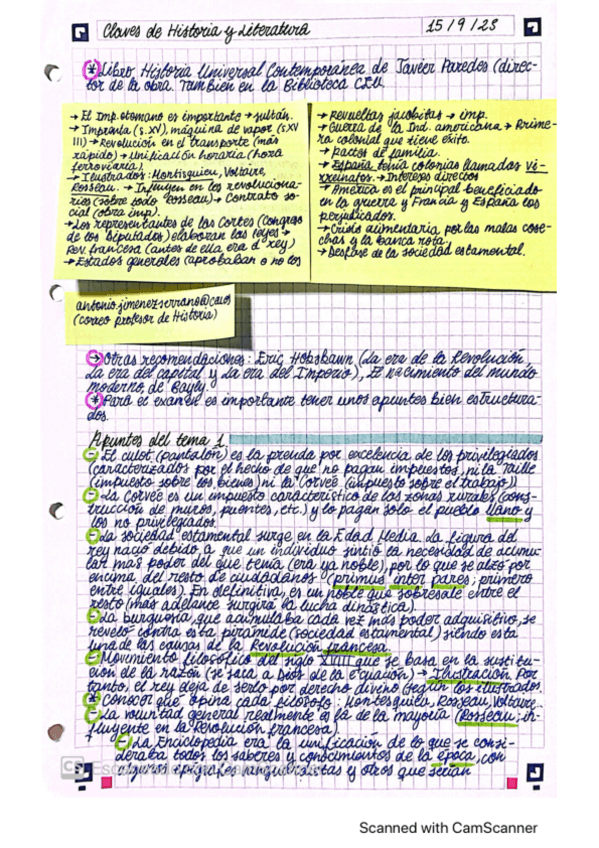 Claves de Historia y Literatura 15/9/23
* Libro Historia Universal Contemporánea de Javier Paredes (direc-
tor de la obra. También en la Biblioteca CEU.
→ El Imp. otomano es importante → sultán.
→ Imprenta (s.XV), máquina de vapor (s.XV
III) → Revolución en el transporte (más
rápido) → unificación horaria (hora
ferroviaria)
→ Ilustrados: Montisquieu, Voltaire,
Rosseau. → Influyen en los revoluciona-
rios (sobre todo Rosseau) → Contrato so-
cial (obra imp).
→ Los representantes de las Cortes (Congreso
de los Diputados) elaboran las leyes →
Rev francesa (antes de ella era el rey)
→ Estados generales (aprobaban o no los
→ Revueltas jacobitas → imp.
→ Guerra de la Ind. americana → Prime-
ra colonial que tiene éxito.
→ Pactos de familia.
→ España tenía colonias llamadas vi-
rreinatos. → Intereses directos
→ América es el principal beneficiado
en la guerra y Francia y España los
perjudicados.
→ Crisis alimentaria, por las malas cose-
chas y la banca rota.
→ Desfase de la sociedad estamental.
antonio.jimenezserrano@ceu.es
(correo profesor de Historia)
→ Otras recomendaciones: Eric Hobsbawn (La era de la Revolución,
La era del capital y La era del Imperio), El nacimiento del mundo
moderno, de Bayly.
* Para el examen es importante tener unos apuntes bien estructura-
dos.
Apuntes del tema 1.
- El culot (pantalón) es la prenda por excelencia de los privilegiados
(caracterizados por el hecho de que no pagan impuestos, ni la Taille
(impuesto sobre los bienes) ni la Corveé (impuesto sobre el trabajo))
- La Corveé es un impuesto característico de las zonas rurales (cons-
trucción de muros, puentes, etc.) y lo pagan solo el pueblo llano y
los no privilegiados.
- La sociedad estamental surge en la Edad Media. La figura del
rey nació debido a que un individuo sintió la necesidad de acumu-
lar más poder del que tenía (era ya noble), por lo que se alzó por
encima del resto de ciudadanos (primus inter pares; primero
entre iguales). En definitiva, es un noble que sobresale entre el
resto (más adelante surgirá la lucha dinástica).
- La burguesía, que acumulaba cada vez más poder adquisitivo, se
reveló contra esta pirámide (sociedad estamental) siendo esta
una de las causas de la Revolución francesa.
- Movimiento filosófico del siglo XVIII que se basa en la sustitu-
ción de la razón (se saca a Dios de la ecuación) → Ilustración. Por
tanto, el rey deja de serlo por derecho divino (según los ilustrados.
* Conocer que opina cada filósofo: Montesquieu, Rosseau, Voltaire.
- La voluntad general realmente es la de la mayoría (Rosseau; in-
fluyente en la Revolución francesa)
- La Enciclopedia era la unificación de lo que se consi-
deraba todos los saberes y conocimientos de la época, con
algunos epígrafes vanguardistas y otros que serían
CS
Scanned with CamScanner